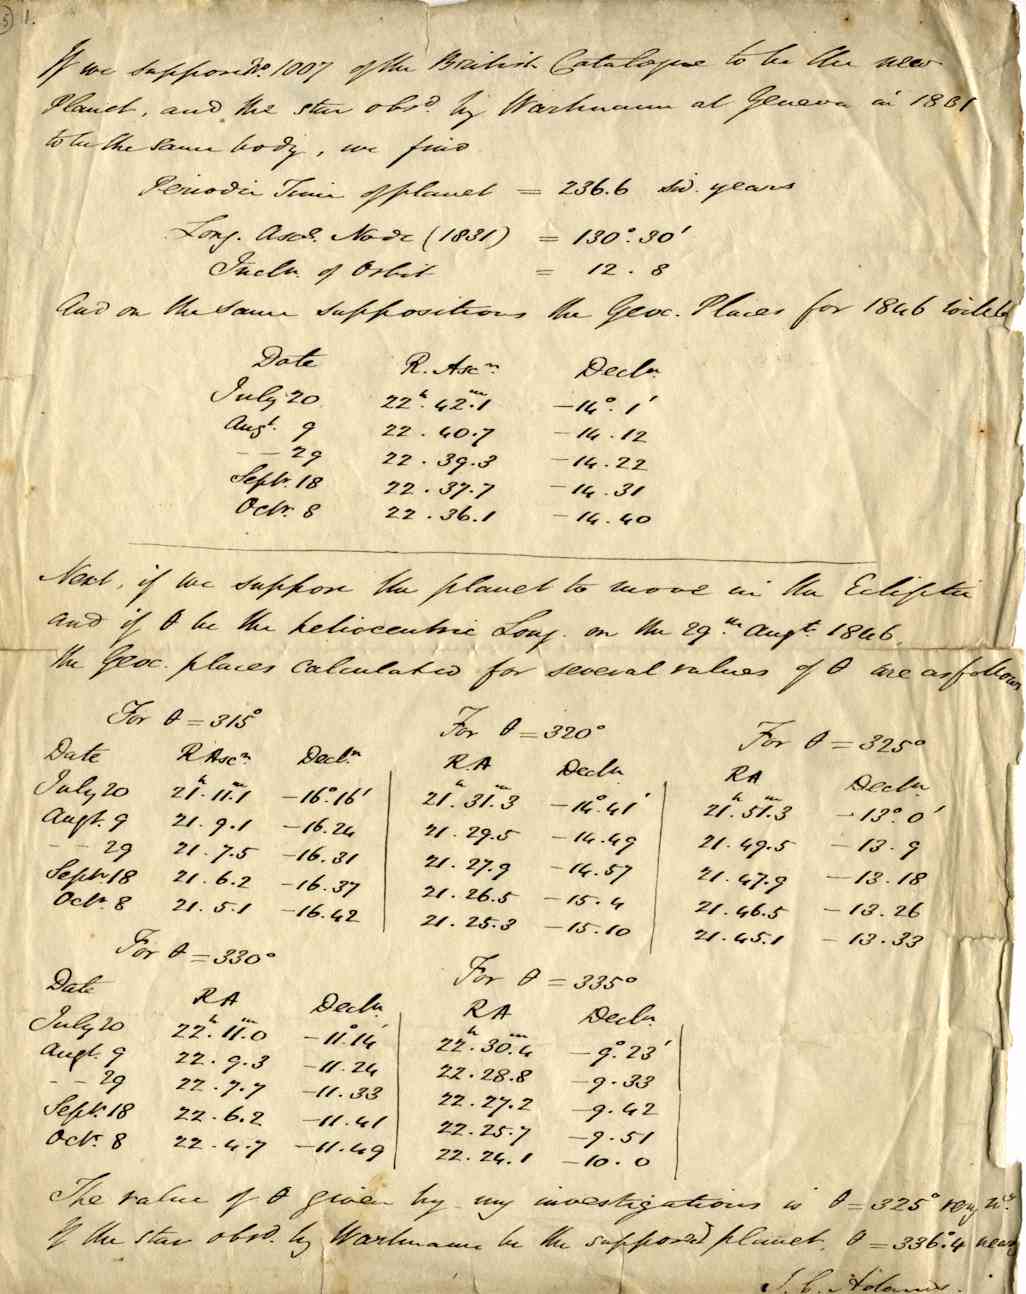 5) 1.
If we suppose No. 1007 of the British Catalogue to be the new
Planet, and the star obsd by Wartmann at Geneva in 1831
to be the same body, we find
Periodic Time of planet = 236.6 sid. years
Long. Ascg. Node (1831) = 130°.30'
Incln. of Orbit = 12.8
And on the same suppositions the Geoc. Places for 1846 will be
Date R. Ascn. Decln.
July 20 22h.42m.1 -14°.1'
Augt. 9 22.40.7 -14.12
-- 29 22.39.3 -14.22
Septr. 18 22.37.7 -14.31
Octr. 8 22.36.1 -14.40
Next, if we suppose the planet to move in the Ecliptic
and if θ be the heliocentric Long. on the 29th Augt. 1846,
the Geoc. places calculated for several values of θ are as follows
For θ = 315° For θ = 320° For θ = 325°
Date R Ascn Decln. RA Decln RA Decln
July 20 21h.11m.1 -16°.16' 21h.31m.3 -14°.41' 21h.51m.3 -13°.0'
Augt. 9 21.9.1 -16.24 21.29.5 -14.49 21.49.5 -13.9
-- 29 21.7.5 -16.31 21.27.9 -14.57 21.47.9 -13.18
Septr. 18 21.6.2 -16.37 21.26.5 -15.4 21.46.5 -13.26
Octr. 8 21.5.1 -16.42 21.25.3 -15.10 21.45.1 -13.33
For θ = 330° For θ = 335°
Date RA Decln RA Decln.
July 20 22h.11m.0 -11°.14' 22h.30m.4 -9°.23'
Augt. 9 22.9.3 -11.24 22.28.8 -9.33
-- 29 22.7.7 -11.33 22.27.2 -9.42
Septr. 18 22.6.2 -11.41 22.25.7 -9.51
Octr. 8 22.4.7 -11.49 22.24.1 -10.0
The value of θ given by my investigations is θ = 325° very
If the star obsd. by Wartmann be the supposed planet, θ = 336°.4
J. C. Adams.